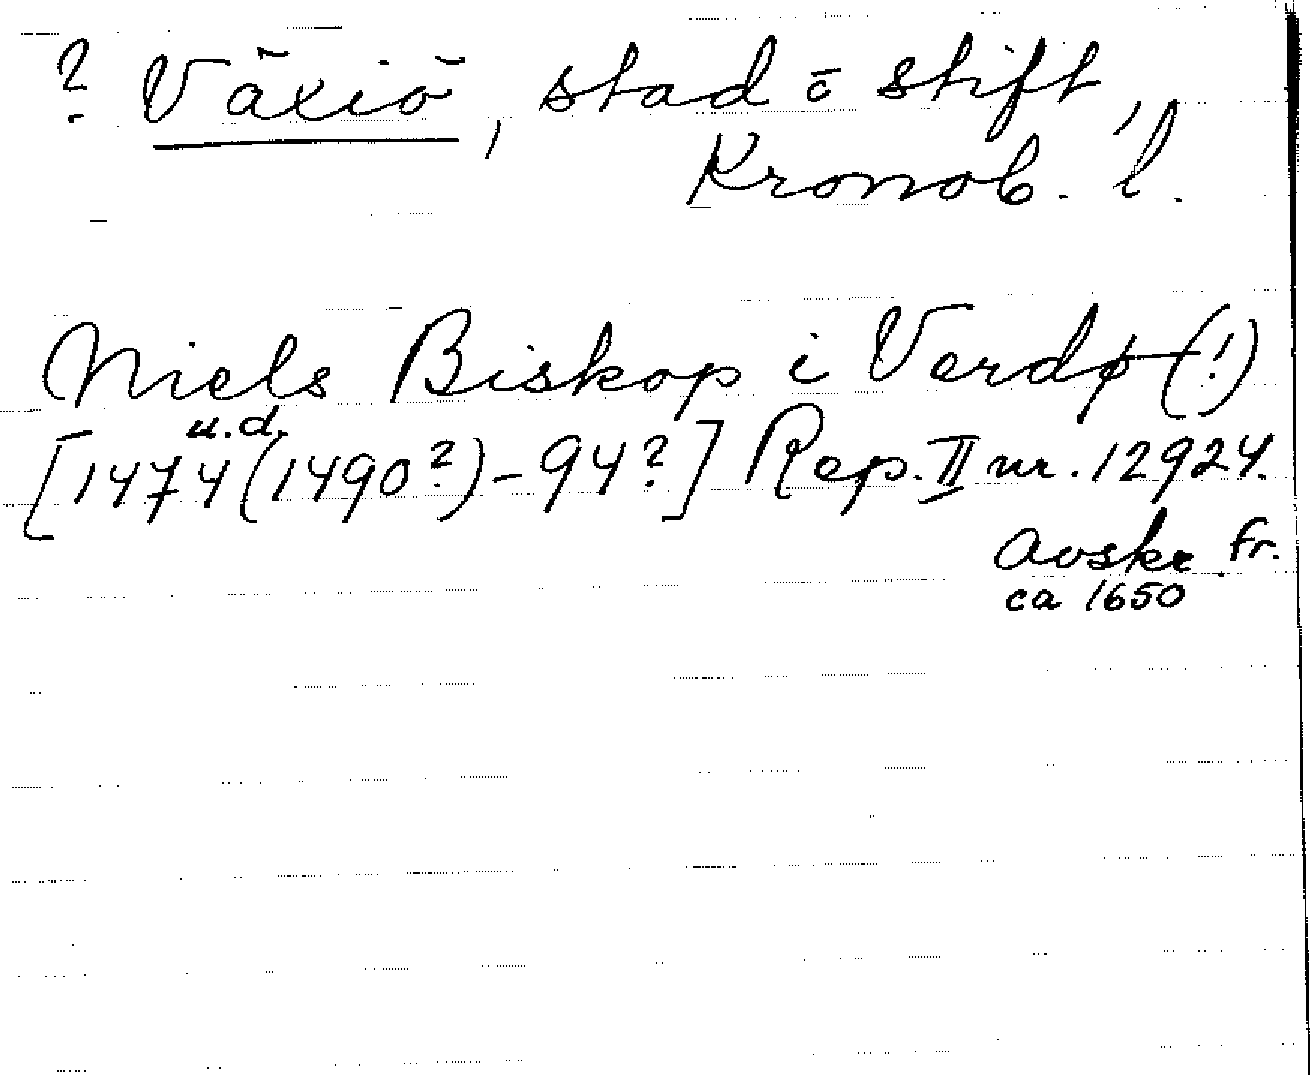 ? Växiö, stad o stift,
Kronob. l.
Niels Biskop i Verdø (!)
u.d.
[1474 (1490?) - 94?] Rep. II nr. 12924.
Avskr. fr.
ca 1650